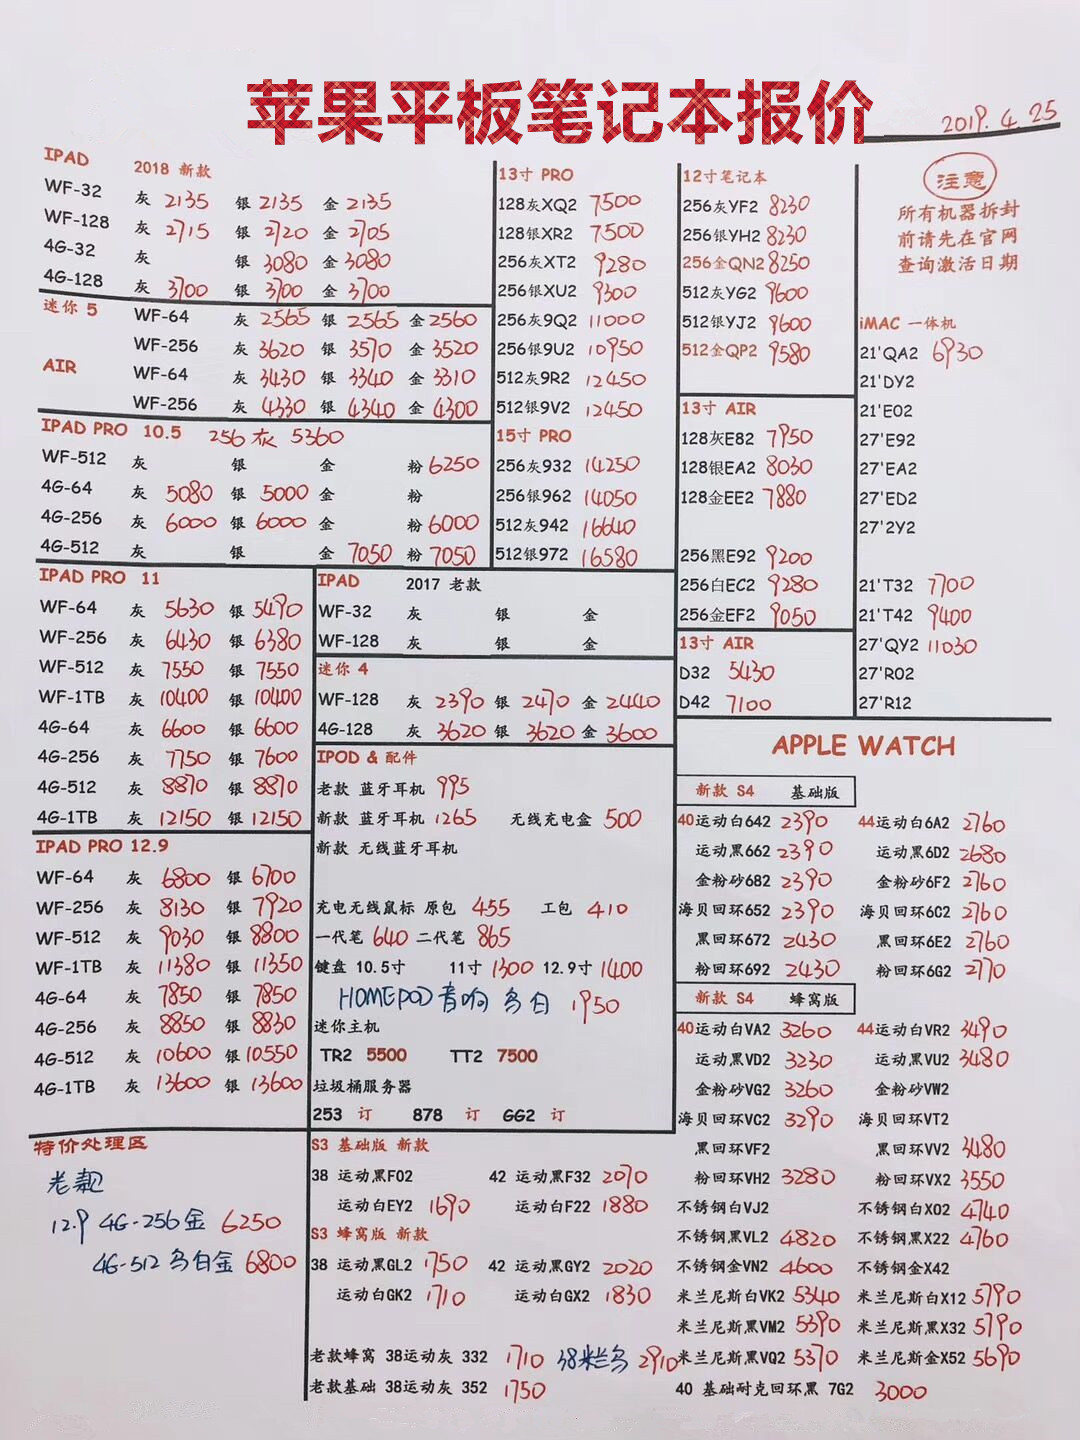 苹果平板笔记本报价
2019. 4. 25
IPAD 2018 新款
WF-32 灰 2135 银 2135 金 2135
WF-128 灰 2715 银 2720 金 2705
4G-32 灰 银 3080 金 3080
4G-128 灰 3700 银 3700 金 3700
迷你 5 WF-64 灰 2565 银 2565 金 2560
WF-256 灰 3620 银 3570 金 3520
AIR WF-64 灰 3430 银 3340 金 3310
WF-256 灰 4330 银 4340 金 4300
IPAD PRO 10.5 256 灰 5360
WF-512 灰 银 金 粉 6250
4G-64 灰 5080 银 5000 金 粉
4G-256 灰 6000 银 6000 金 粉 6000
4G-512 灰 银 金 7050 粉 7050
13寸 PRO
128灰XQ2 7500
128银XR2 7500
256灰XT2 9280
256银XU2 9300
256灰9Q2 11000
256银9U2 10950
512灰9R2 12450
512银9V2 12450
15寸 PRO
256灰932 14250
256银962 14050
512灰942 16640
512银972 16580
12寸笔记本
256灰YF2 8230
256银YH2 8230
256金QN2 8250
512灰YG2 9600
512银YJ2 9600
512金QP2 9580
13寸 AIR
128灰E82 7950
128银EA2 8030
128金EE2 7880
256黑E92 9200
256白EC2 9280
256金EF2 9050
13寸 AIR
D32 5430
D42 7100
注意
所有机器拆封
前请先在官网
查询激活日期
iMAC 一体机
21'QA2 6930
21'DY2
21'E02
27'E92
27'EA2
27'ED2
27'2Y2
21'T32 7700
21'T42 9400
27'QY2 11030
27'R02
27'R12
IPAD PRO 11
WF-64 灰 5630 银 5490
WF-256 灰 6430 银 6380
WF-512 灰 7550 银 7550
WF-1TB 灰 10400 银 10400
4G-64 灰 6600 银 6600
4G-256 灰 7750 银 7600
4G-512 灰 8870 银 8870
4G-1TB 灰 12150 银 12150
IPAD PRO 12.9
WF-64 灰 6800 银 6700
WF-256 灰 8130 银 7920
WF-512 灰 9030 银 8800
WF-1TB 灰 11380 银 11350
4G-64 灰 7850 银 7850
4G-256 灰 8850 银 8830
4G-512 灰 10600 银 10550
4G-1TB 灰 13600 银 13600
IPAD 2017 老款
WF-32 灰 银 金
WF-128 灰 银 金
迷你 4
WF-128 灰 2390 银 2470 金 2440
4G-128 灰 3620 银 3620 金 3600
IPOD & 配件
老款 蓝牙耳机 995
新款 蓝牙耳机 1265 无线充电盒 500
新款 无线蓝牙耳机
充电无线鼠标 原包 455 工包 410
一代笔 640 二代笔 865
键盘 10.5寸 11寸 1300 12.9寸 1400
HOMEPOD 音响 乌白 1950
迷你主机
TR2 5500 TT2 7500
垃圾桶服务器
253 订 878 订 GG2 订
APPLE WATCH
新款 S4 基础版
40运动白642 2390 44运动白6A2 2760
运动黑662 2390 运动黑6D2 2680
金粉砂682 2390 金粉砂6F2 2760
海贝回环652 2390 海贝回环6C2 2760
黑回环672 2430 黑回环6E2 2760
粉回环692 2430 粉回环6G2 2770
新款 S4 蜂窝版
40运动白VA2 3260 44运动白VR2 3490
运动黑VD2 3230 运动黑VU2 3480
金粉砂VG2 3260 金粉砂VW2
海贝回环VC2 3290 海贝回环VT2
黑回环VF2 黑回环VV2 3480
粉回环VH2 3280 粉回环VX2 3550
不锈钢白VJ2 不锈钢白X02 4740
不锈钢黑VL2 4820 不锈钢黑X22 4760
不锈钢金VN2 4600 不锈钢金X42
米兰尼斯白VK2 5340 米兰尼斯白X12 5790
米兰尼斯黑VM2 5390 米兰尼斯黑X32 5790
米兰尼斯黑VQ2 5370 米兰尼斯金X52 5690
40 基础耐克回环黑 7G2 3000
特价处理区
老款
12.9 4G-256 金 6250
4G-512 乌白金 6800
S3 基础版 新款
38 运动黑F02 42 运动黑F32 2070
运动白EY2 1690 运动白F22 1880
S3 蜂窝版 新款
38 运动黑GL2 1750 42 运动黑GY2 2020
运动白GK2 1710 运动白GX2 1830
老款蜂窝 38运动灰 332 1710 38米兰乌 2910
老款基础 38运动灰 352 1750